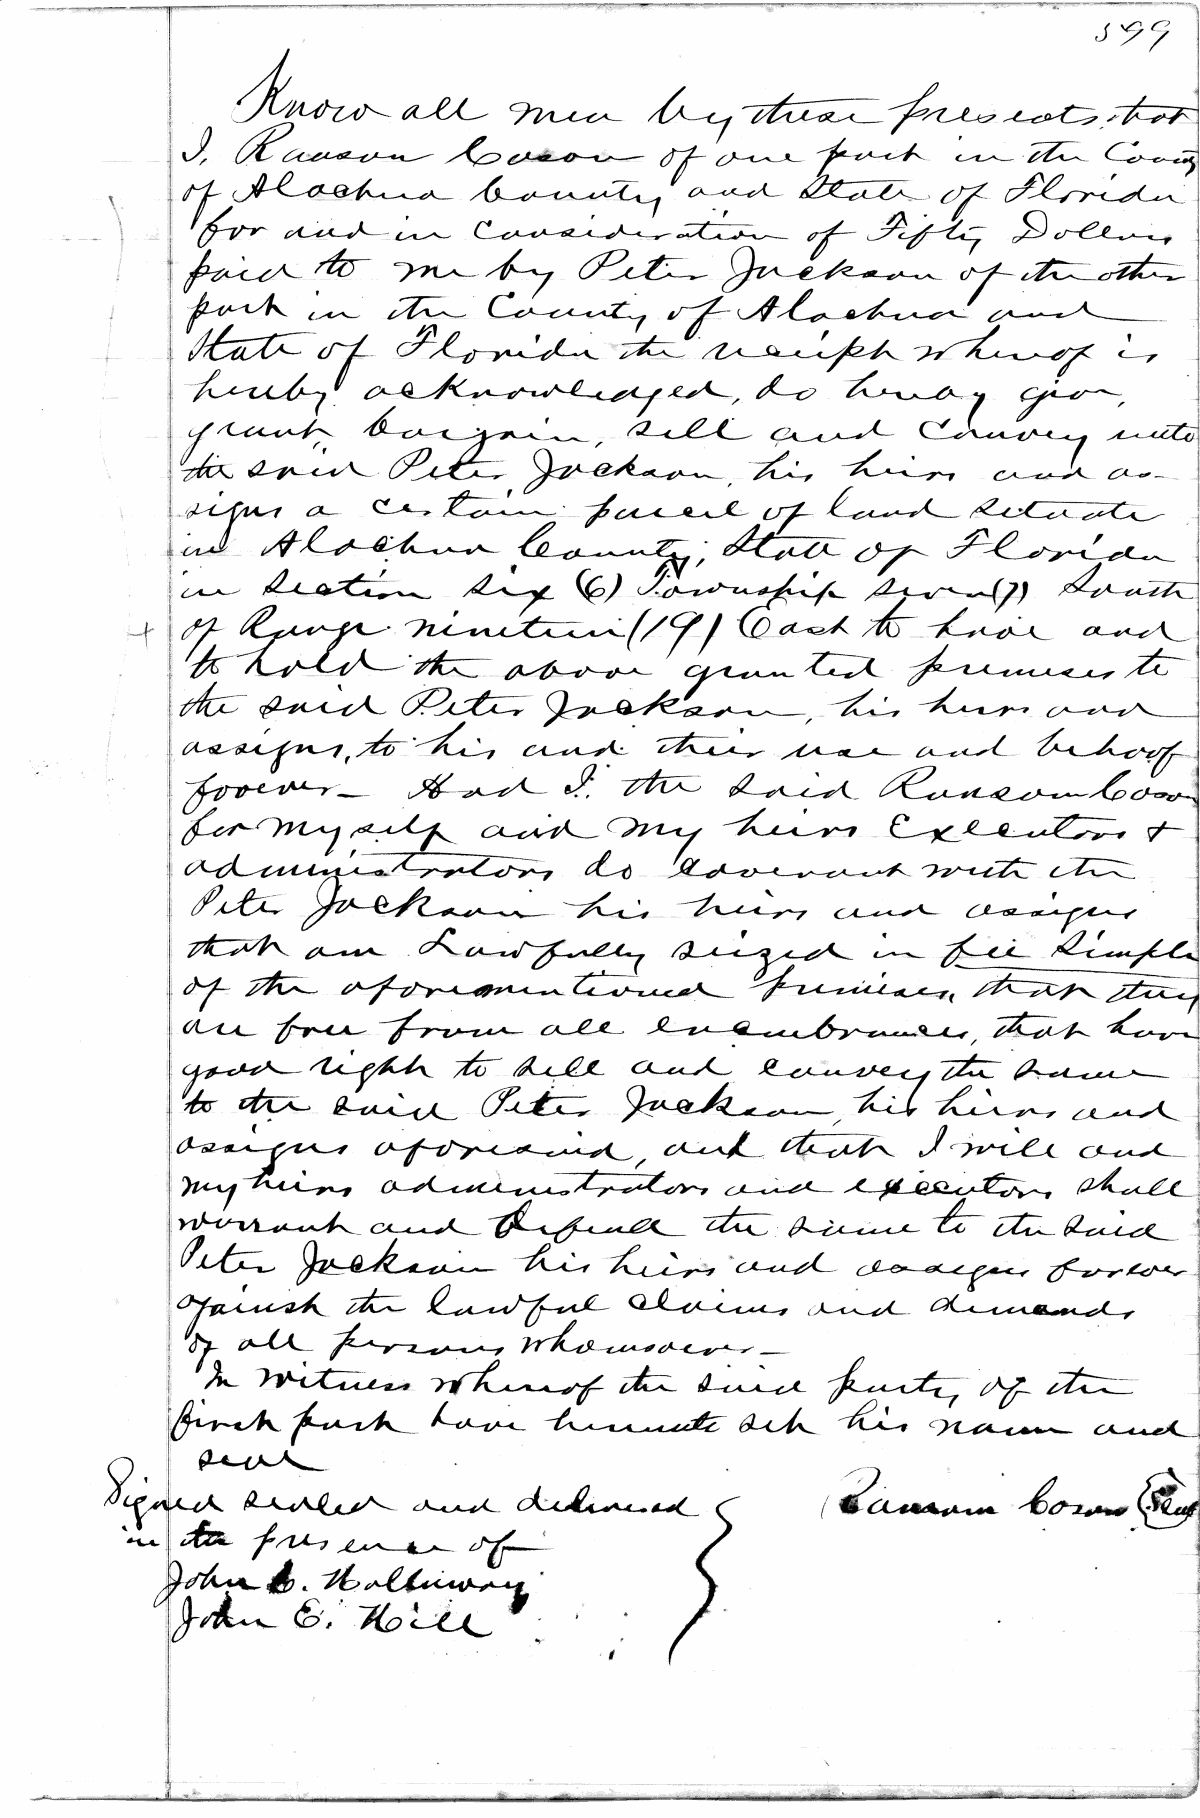 599
Know all men by these presents, that
I, Ranson Cason of one part in the County
of Alachua County and State of Florida
for and in consideration of Fifty Dollars
paid to me by Peter Jackson of the other
part in the County of Alachua and
State of Florida the receipt whereof is
hereby acknowledged, do hereby give,
grant, bargain, sell and convey unto
the said Peter Jackson, his heirs and as-
signs a certain parcel of land situate
in Alachua County, State of Florida
in Section six (6) Township seven (7) South
of Range nineteen (19) East to have and
to hold the above granted premises to
the said Peter Jackson, his heirs and
assigns, to his and their use and behoof
forever – And I, the said Ransom Cason
for myself and my heirs Executors &
administrators do covenant with the
Peter Jackson his heirs and assigns
that am Lawfully seized in fee simple
of the aforementioned premises, that they
are free from all encumbrances, that have
good right to sell and convey the same
to the said Peter Jackson, his heirs and
assigns aforesaid, and that I will and
my heirs administrators and executors shall
warrant and defend the same to the said
Peter Jackson his heirs and assigns forever
against the lawful claims and demands
of all persons whomsoever –
In witness whereof the said party of the
first part have hereunto set his name and
seal
Signed sealed and delivered Ransom Cason (Seal
in the presence of
John C. Holloway
John E. Hill